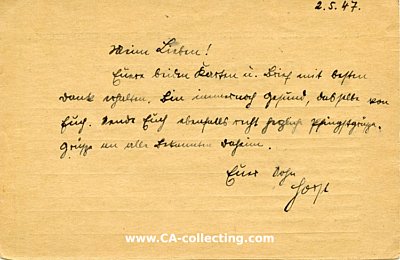 2.5.47.
Meine Lieben!
Euere beiden Karten u. Brief mit besten
Dank erhalten. Bin immernoch gesund, dasselbe von
Euch. Sende Euch ebenfalls recht herzlich Pfingstgrüße.
Grüße an alle Bekannten daheim.
Euer Sohn
Horst
www.CA-collecting.com